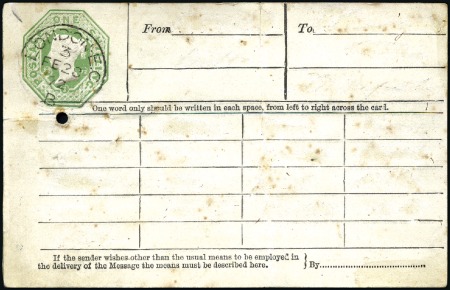 ONE
LONDON.E.C
3
FE 23
From
To
One word only should be written in each space, from left to right across the card.
If the sender wishes other than the usual means to be employed in
the delivery of the Message the means must be described here.
By